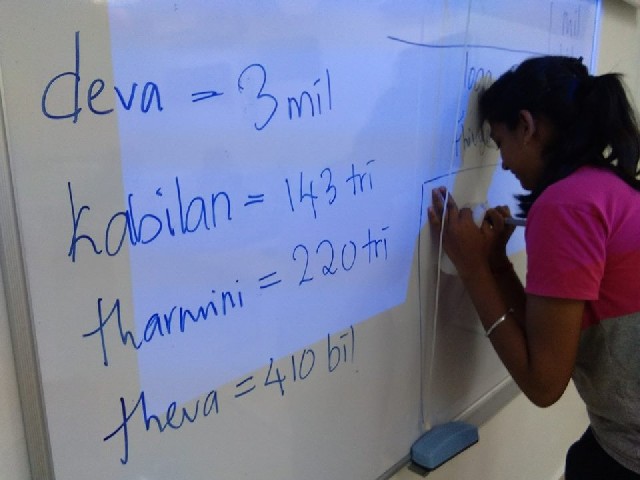 deva = 3 mil
kabilan = 143 tri
tharmini = 220 tri
theva = 410 bil
mil